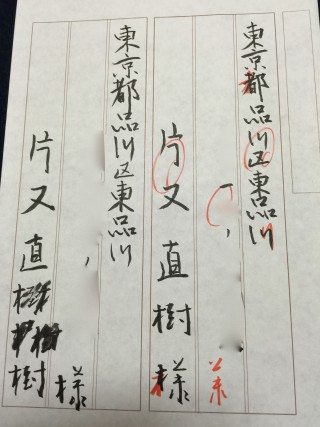 東京都品川区東品川
片又直樹様
東京都品川区東品川
片又直樹
様